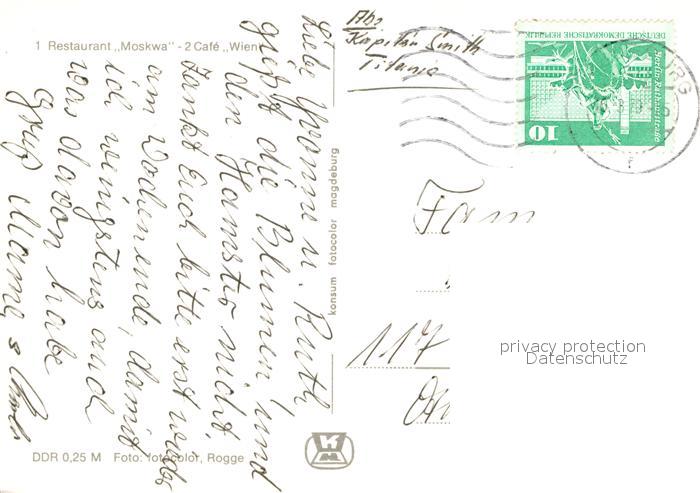 1 Restaurant „Moskwa" - 2 Café „Wien"
Liebe Yvonne u. Ruth,
gießt die Blumen und
den Hamster nicht,
zankt Euch bitte erst wieder
am Wochenende, damit
ich wenigstens auch
was davon habe
Gruß Mama &
DDR 0,25 M Foto: fotocolor, Rogge
konsum fotocolor magdeburg
KM
Abs
Kapitän Smith
Titanic
DEUTSCHE DEMOKRATISCHE REPUBLIK
Berlin, Rathausstraße
10
URG
Fam
117
privacy protection
Datenschutz